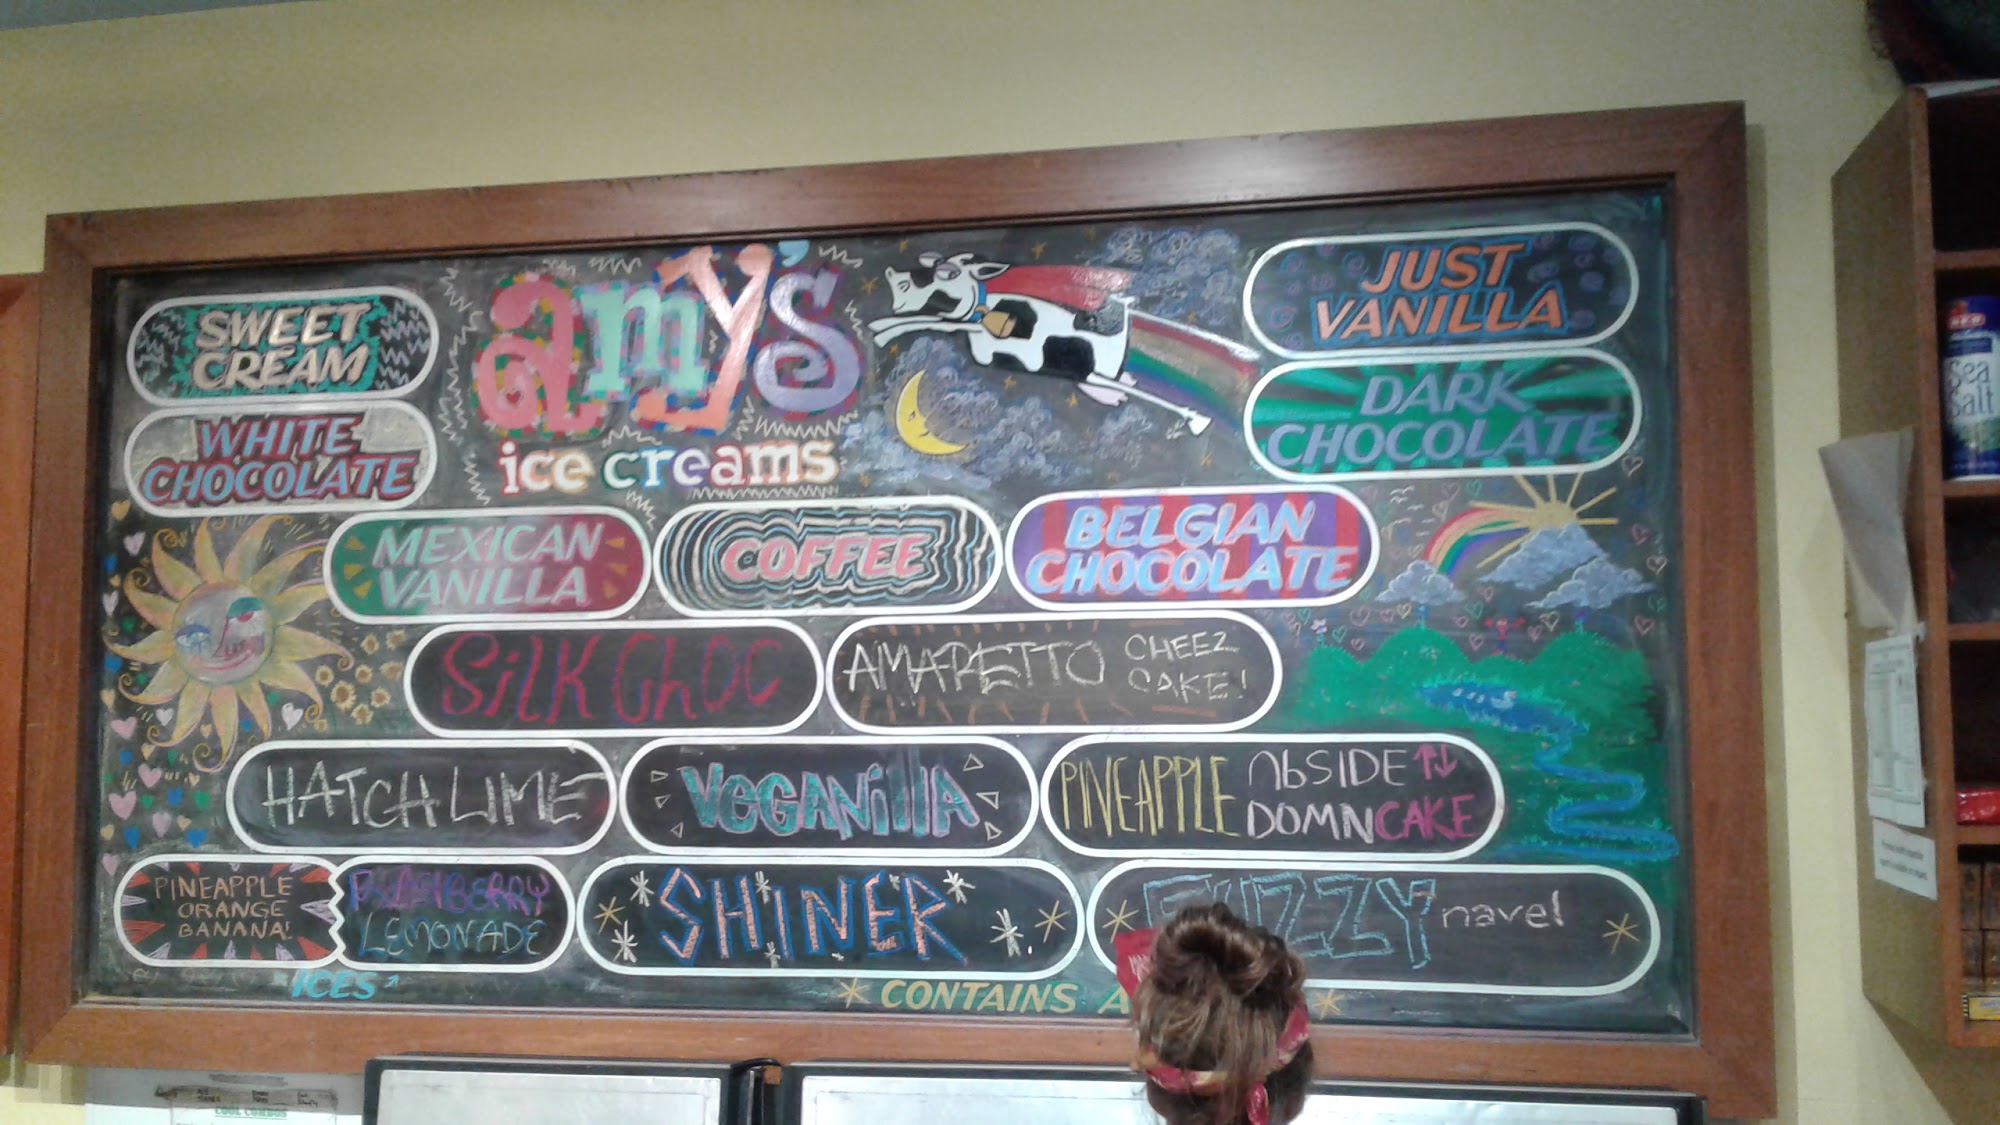 amy's
ice creams
SWEET
CREAM
WHITE
CHOCOLATE
JUST
VANILLA
DARK
CHOCOLATE
MEXICAN
VANILLA
COFFEE
BELGIAN
CHOCOLATE
SilK ChOC
AMARETTO CHEEZ
CAKE!
HATCH LIME
VEGANillA
PINEAPPLE UPSIDE
DOWNCAKE
PINEAPPLE
ORANGE
BANANA!
LEMONADE
SHINER
FUZZY navel
ICES
CONTAINS A
Sea
Salt
COOL COMBOS